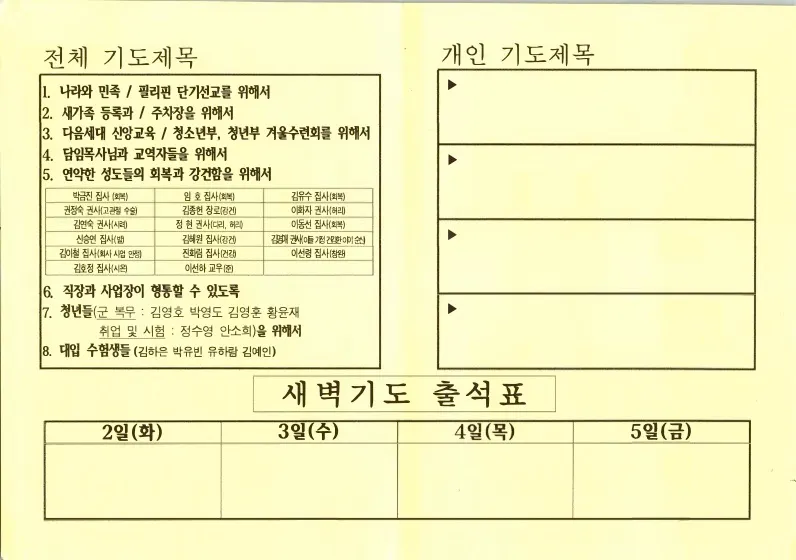 전체 기도제목
1. 나라와 민족 / 필리핀 단기선교를 위해서
2. 새가족 등록과 / 주차장을 위해서
3. 다음세대 신앙교육 / 청소년부, 청년부 겨울수련회를 위해서
4. 담임목사님과 교역자들을 위해서
5. 연약한 성도들의 회복과 강건함을 위해서
박금진 집사(회복) 임 호 집사(회복) 김유수 집사(회복)
권정숙 권사(고관절 수술) 김종헌 장로(강건) 이화자 권사(허리)
김만숙 권사(사력) 정 현 권사(다리, 허리) 이동선 집사(회복)
신승연 집사(발) 김혜원 집사(강건)
김이철 집사(회사 사업 안정) 진화림 집사(건강) 이선령 집사(참원)
김호정 집사(시온) 이선하 교우(준)
6. 직장과 사업장이 형통할 수 있도록
7. 청년들(군 복무 : 김영호 박영도 김영훈 황윤재
취업 및 시험 : 정수영 안소희)을 위해서
8. 대입 수험생들 (김하은 박유빈 유하람 김예인)
개인 기도제목
▶
▶
▶
▶
새벽기도 출석표
2일(화) 3일(수) 4일(목) 5일(금)